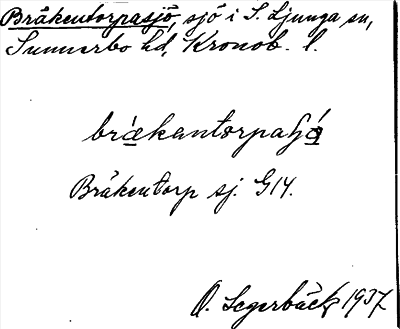 Bråkentorpasjö, sjö i S. Ljunga sn,
Sunnerbo hd, Kronob. l.
bræ̀kantorpaʃǿ
Bråkentorp sj. G14.
O. Segerbäck 1937